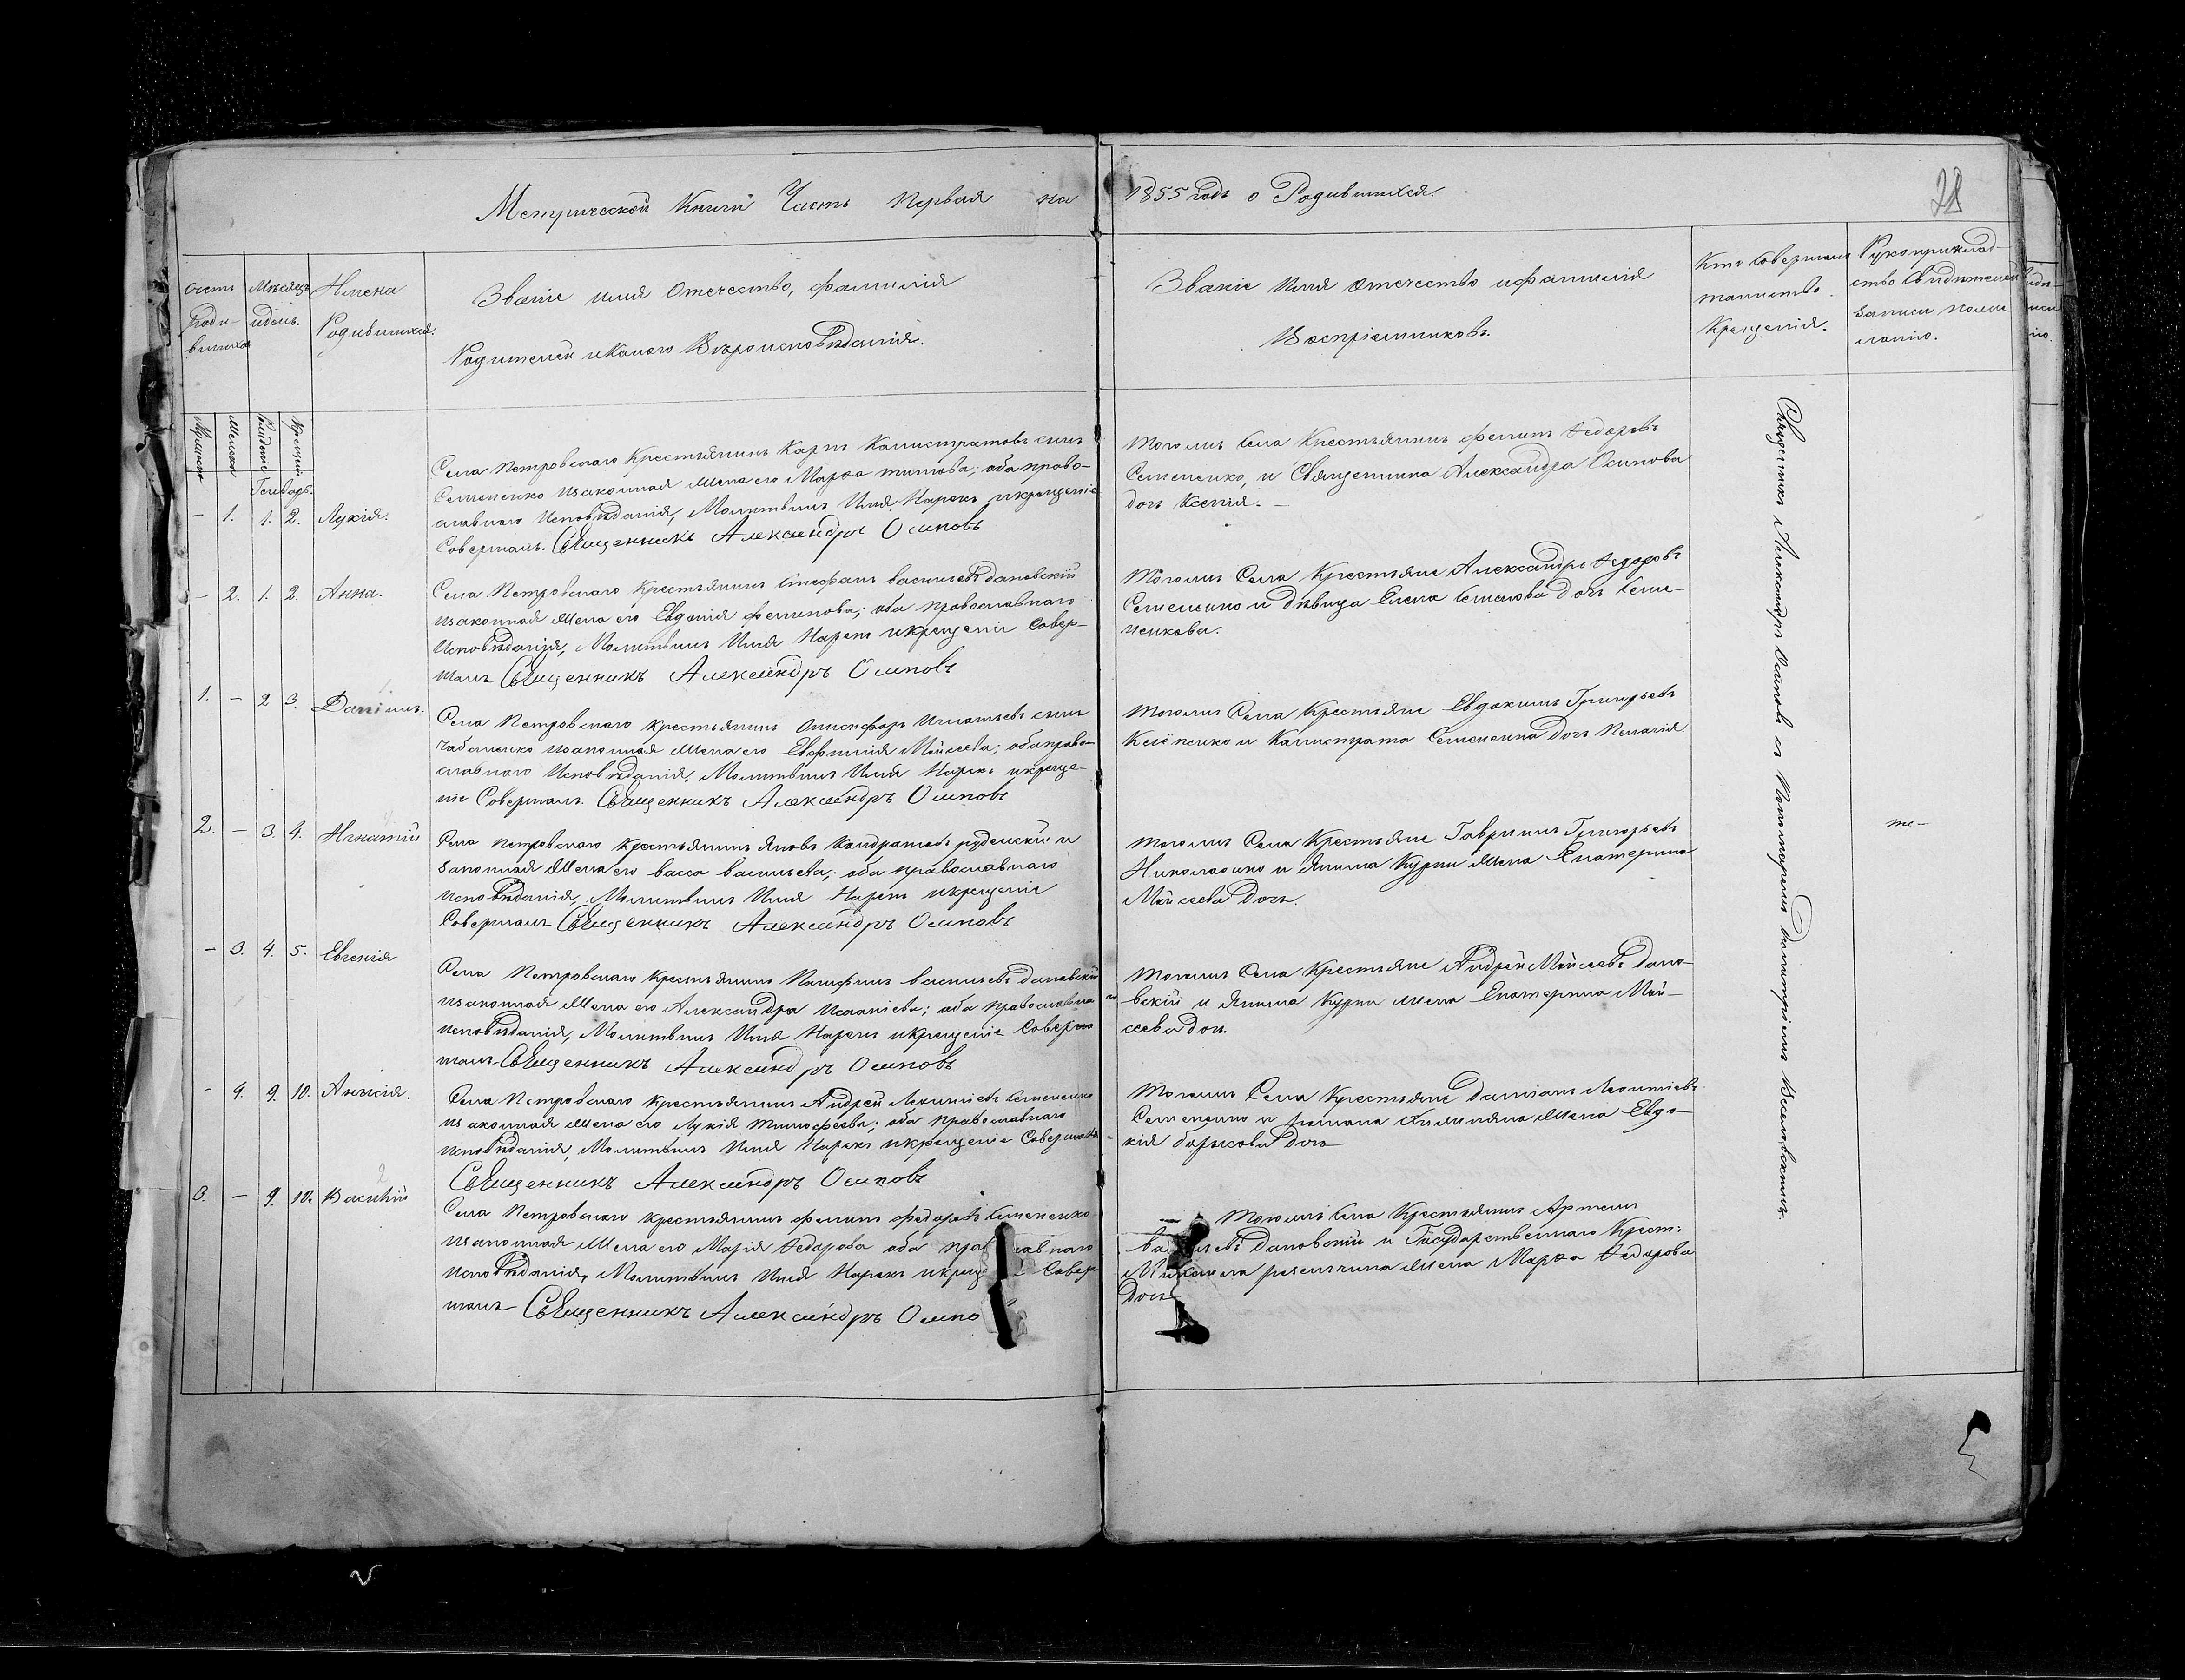 Метрической Книги Часть первая на 1855 годъ о Родившихся.
28
Счетъ
Роди-
вшихся
Мѣсяцъ
и день.
Имена
Родившихся.
Званіе имя Отечество, фамилія
Родителей и какого Вѣроисповѣданія.
Званіе Имя отечество и фамилія
Воспріемниковъ.
Кто совершалъ
таинство
Крещенія.
Рукоприклад-
ство свидѣтелей
записи по жела
ланію.
Мужеска
Женска
Рожденіе
Крещеніе
Генварь.
– 1. 1. 2. Лукія.
Села Петровскаго Крестьянинъ Карпъ Калистратовъ сынъ
Семененко и законная жена его Марѳа Титова; оба право-
славнаго Исповѣданія, Молитвилъ Имя Нарекъ и крещеніе
Совершалъ. Священникъ Александръ Осиповъ
Тогожъ Села Крестьянинъ филипъ Ѳедоровъ
Семененко, и Священника Александра Осипова
дочь Ксенія. –
– 2. 1. 2. Анна.
Села Петровскаго Крестьянинъ Стефанъ васильевъ дановскій
и законная жена его Евдокія филипова; оба православнаго
Исповѣданія, Молитвилъ Имя Нарекъ и крещеніе Совер-
шалъ Священникъ Александръ Осиповъ
Тогожъ Села Крестьяне Александръ Ѳедоровъ
Семененко и дѣвица Елена Семенова дочь Семе-
ненкова.
1. – 2 3. Даніилъ.
Села Петровскаго крестьянинъ Онисифоръ Игнатьевъ сынъ
Чабаненко и законная жена его Евфимія Мойсеева; оба право-
славнаго Исповѣданія, Молитвилъ Имя Нарекъ и креще-
ніе Совершалъ. Священникъ Александръ Осиповъ
Тогожъ Села Крестьяне Евдокимъ Григорьевъ
и Калистрата Семененка дочь Пелагія.
2. – 3. 4. Игнатій
Села Петровскаго Крестьянинъ Яковъ Кондратовъ руденскій и
законная жена его васса васильева; оба православнаго
исповѣданія, Молитвилъ Имя Нарекъ и крещеніе
Совершалъ Священникъ Александръ Осиповъ
Тогожъ Села Крестьяне Гаврiилъ Григорьевъ
Николаенко и Якима Курпи жена Екатерина
Мойсеева дочь.
– 3. 4. 5. Евгенія
Села Петровскаго Крестьянинъ Памфилъ васильевъ дановскій
и законная жена его Александра; оба православнаго
исповѣданія, Молитвилъ Имя Нарекъ и крещеніе Соверш
шалъ Священникъ Александръ Осиповъ
Тогожъ Села Крестьяне Андрей Мойсеевъ дано-
вскій и Якима Курпи жена Екатерина Мой-
сеева доч.
– 4. 9. 10. Анисія.
Села Петровскаго крестьянинъ Андрей Леонтіевъ Семененко
и законная жена его Лукія Тимофеева; оба православнаго
исповѣданія, Молитвилъ Имя Нарекъ и крещеніе Совершалъ
Священникъ Александръ Осиповъ
Тогожъ Села Крестьяне Даміанъ Леонтіевъ
Семененко и романа жена Евдо-
кія борисова дочь
3. – 9. 10. Василій
Села Петровскаго крестьянинъ филипъ федоровъ Семененко
и законная жена его Марія Ѳедорова оба православнаго
исповѣданія, Молитвилъ Имя Нарекъ и крещеніе Совер-
шалъ Священникъ Александръ Осипо
Тогожъ Села Крестьянинъ Артемъ
васильевъ дановскій и Государственнаго Крест:
Михаила жена Марѳа Ѳедорова
дочь
Священникъ Александръ Осиповъ съ Пономаремъ Димитріемъ Веселовскимъ.